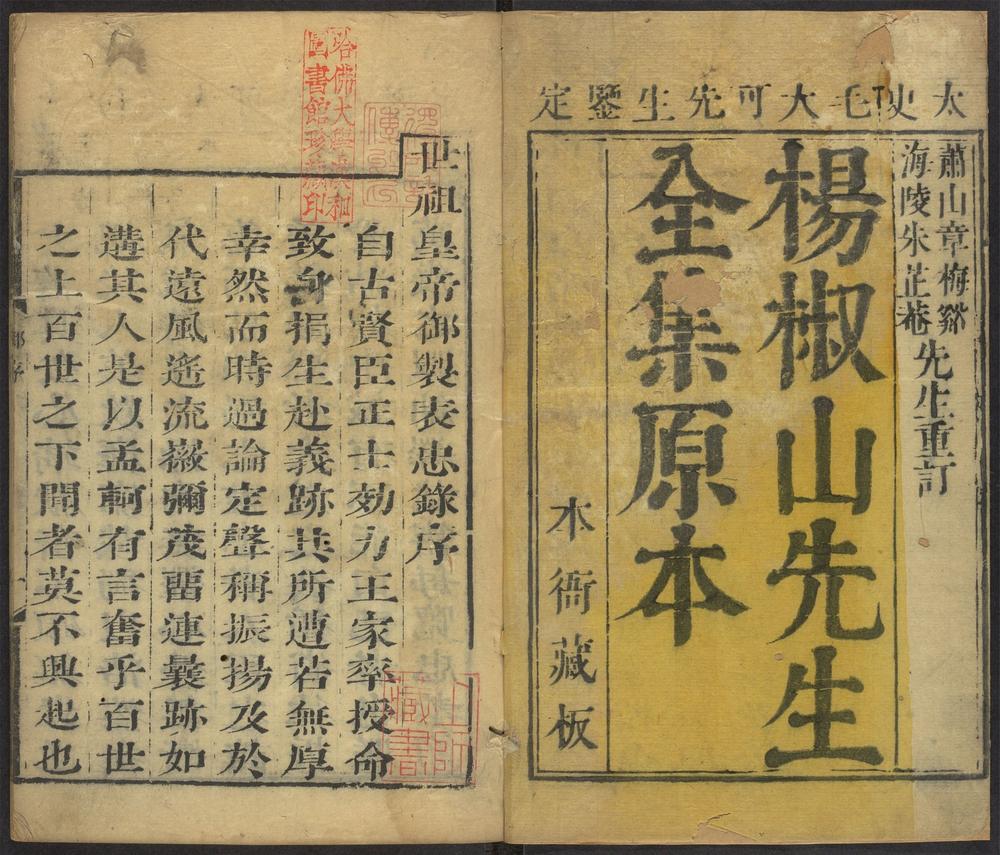 太史毛大可先生鑒定
蕭山章梅谿
海陵朱芷菴
先生重訂
楊椒山先生
全集原本
本衙藏板
世祖皇帝御製表忠錄序
自古賢臣正士効力王家率授命
致身捐生赴義跡其所遭若無厚
幸然而時過論定聲稱振揚及於
代遠風遙流徽彌茂畱連曩跡如
遘其人是以孟軻有言奮乎百世
之上百世之下聞者莫不興起也
哈佛大學漢和
圖書館珍藏印
藏書